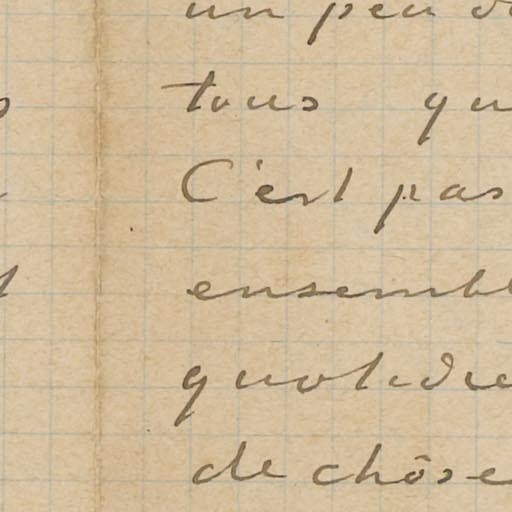 un peu d
tous qu
C'est pas
ensembl
quotidie
de chose